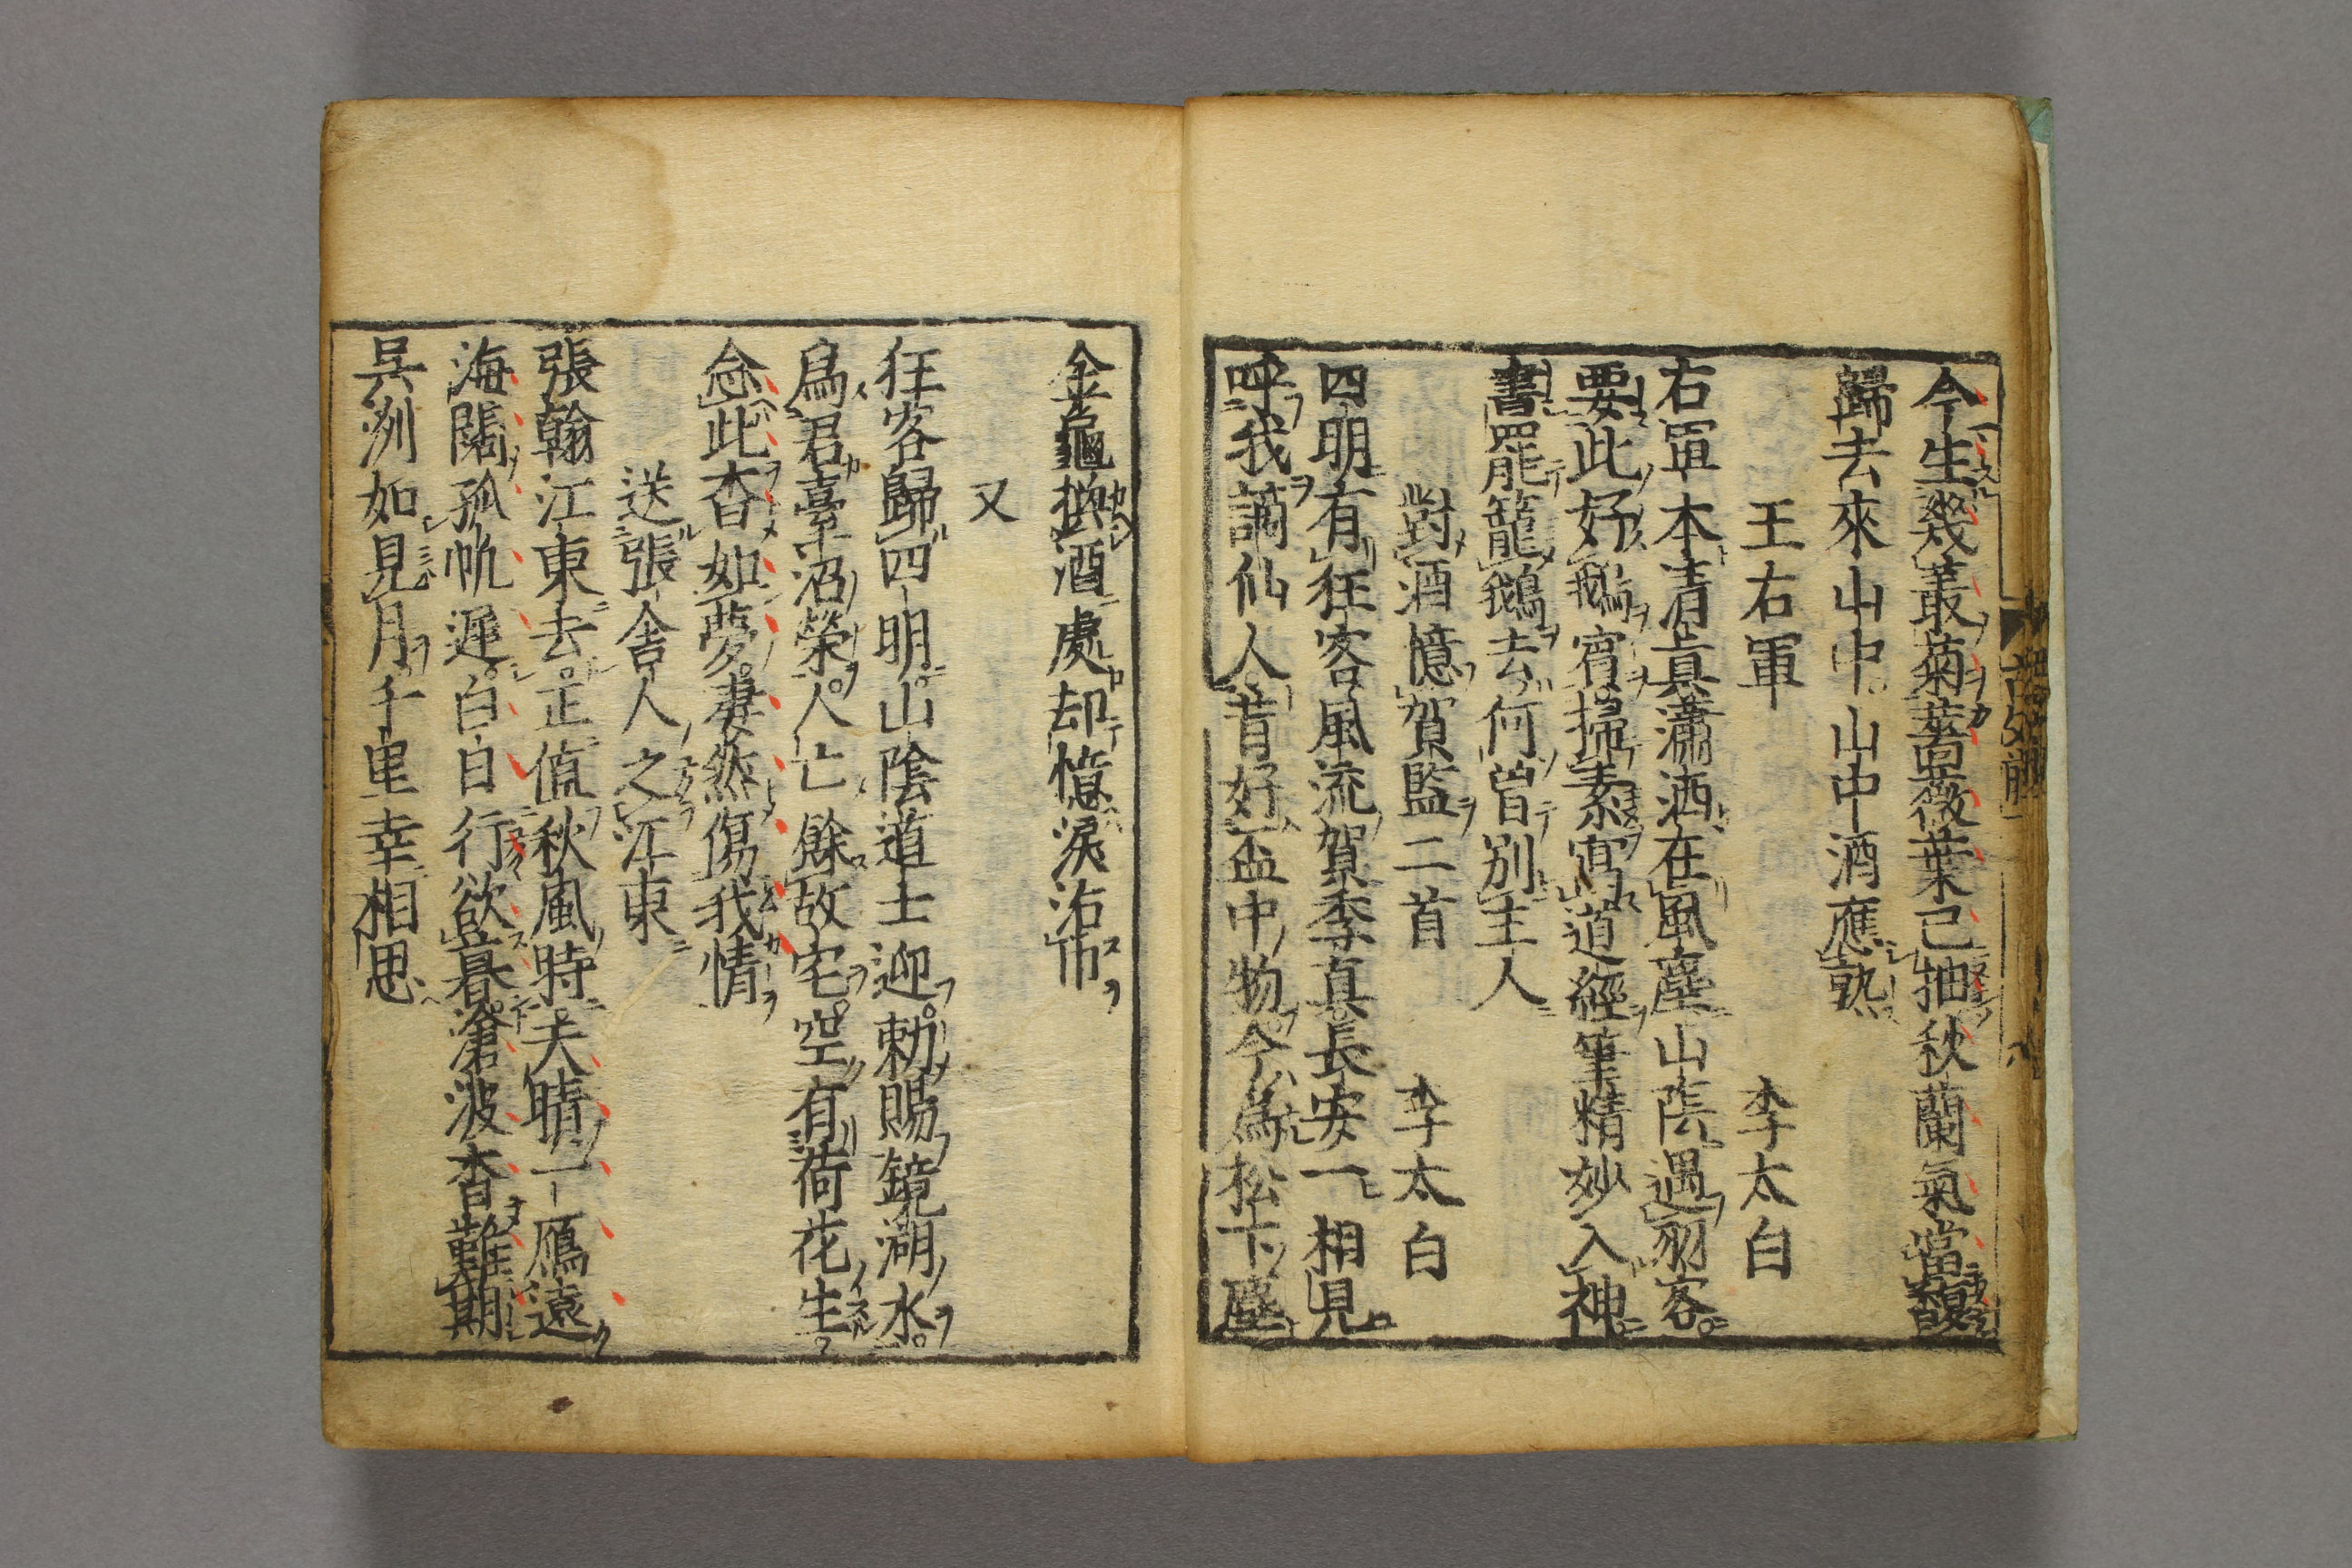 今生幾叢菊薔薇葉已抽秋蘭氣當馥
歸去來山中山中酒應熟
王右軍 李太白
右軍本清眞瀟洒在風塵山陰遇羽客
要此好鵝賓掃素寫道經筆精妙入神
書罷籠鵝去何曾別主人
對酒憶賀監二首 李太白
四明有狂客風流賀季真長安一相見
呼我謫仙人昔好盃中物今爲松下塵
金龜換酒處却憶淚沾巾
又
狂客歸四明山陰道士迎勅賜鏡湖水
爲君臺沼榮人亡餘故宅空有荷花生
念此杳如夢凄然傷我情
送張舍人之江東
張翰江東去正值秋風時天晴一鴈遠
海闊孤帆遲白日行欲暮滄波杳難期
吳洲如見月千里幸相思